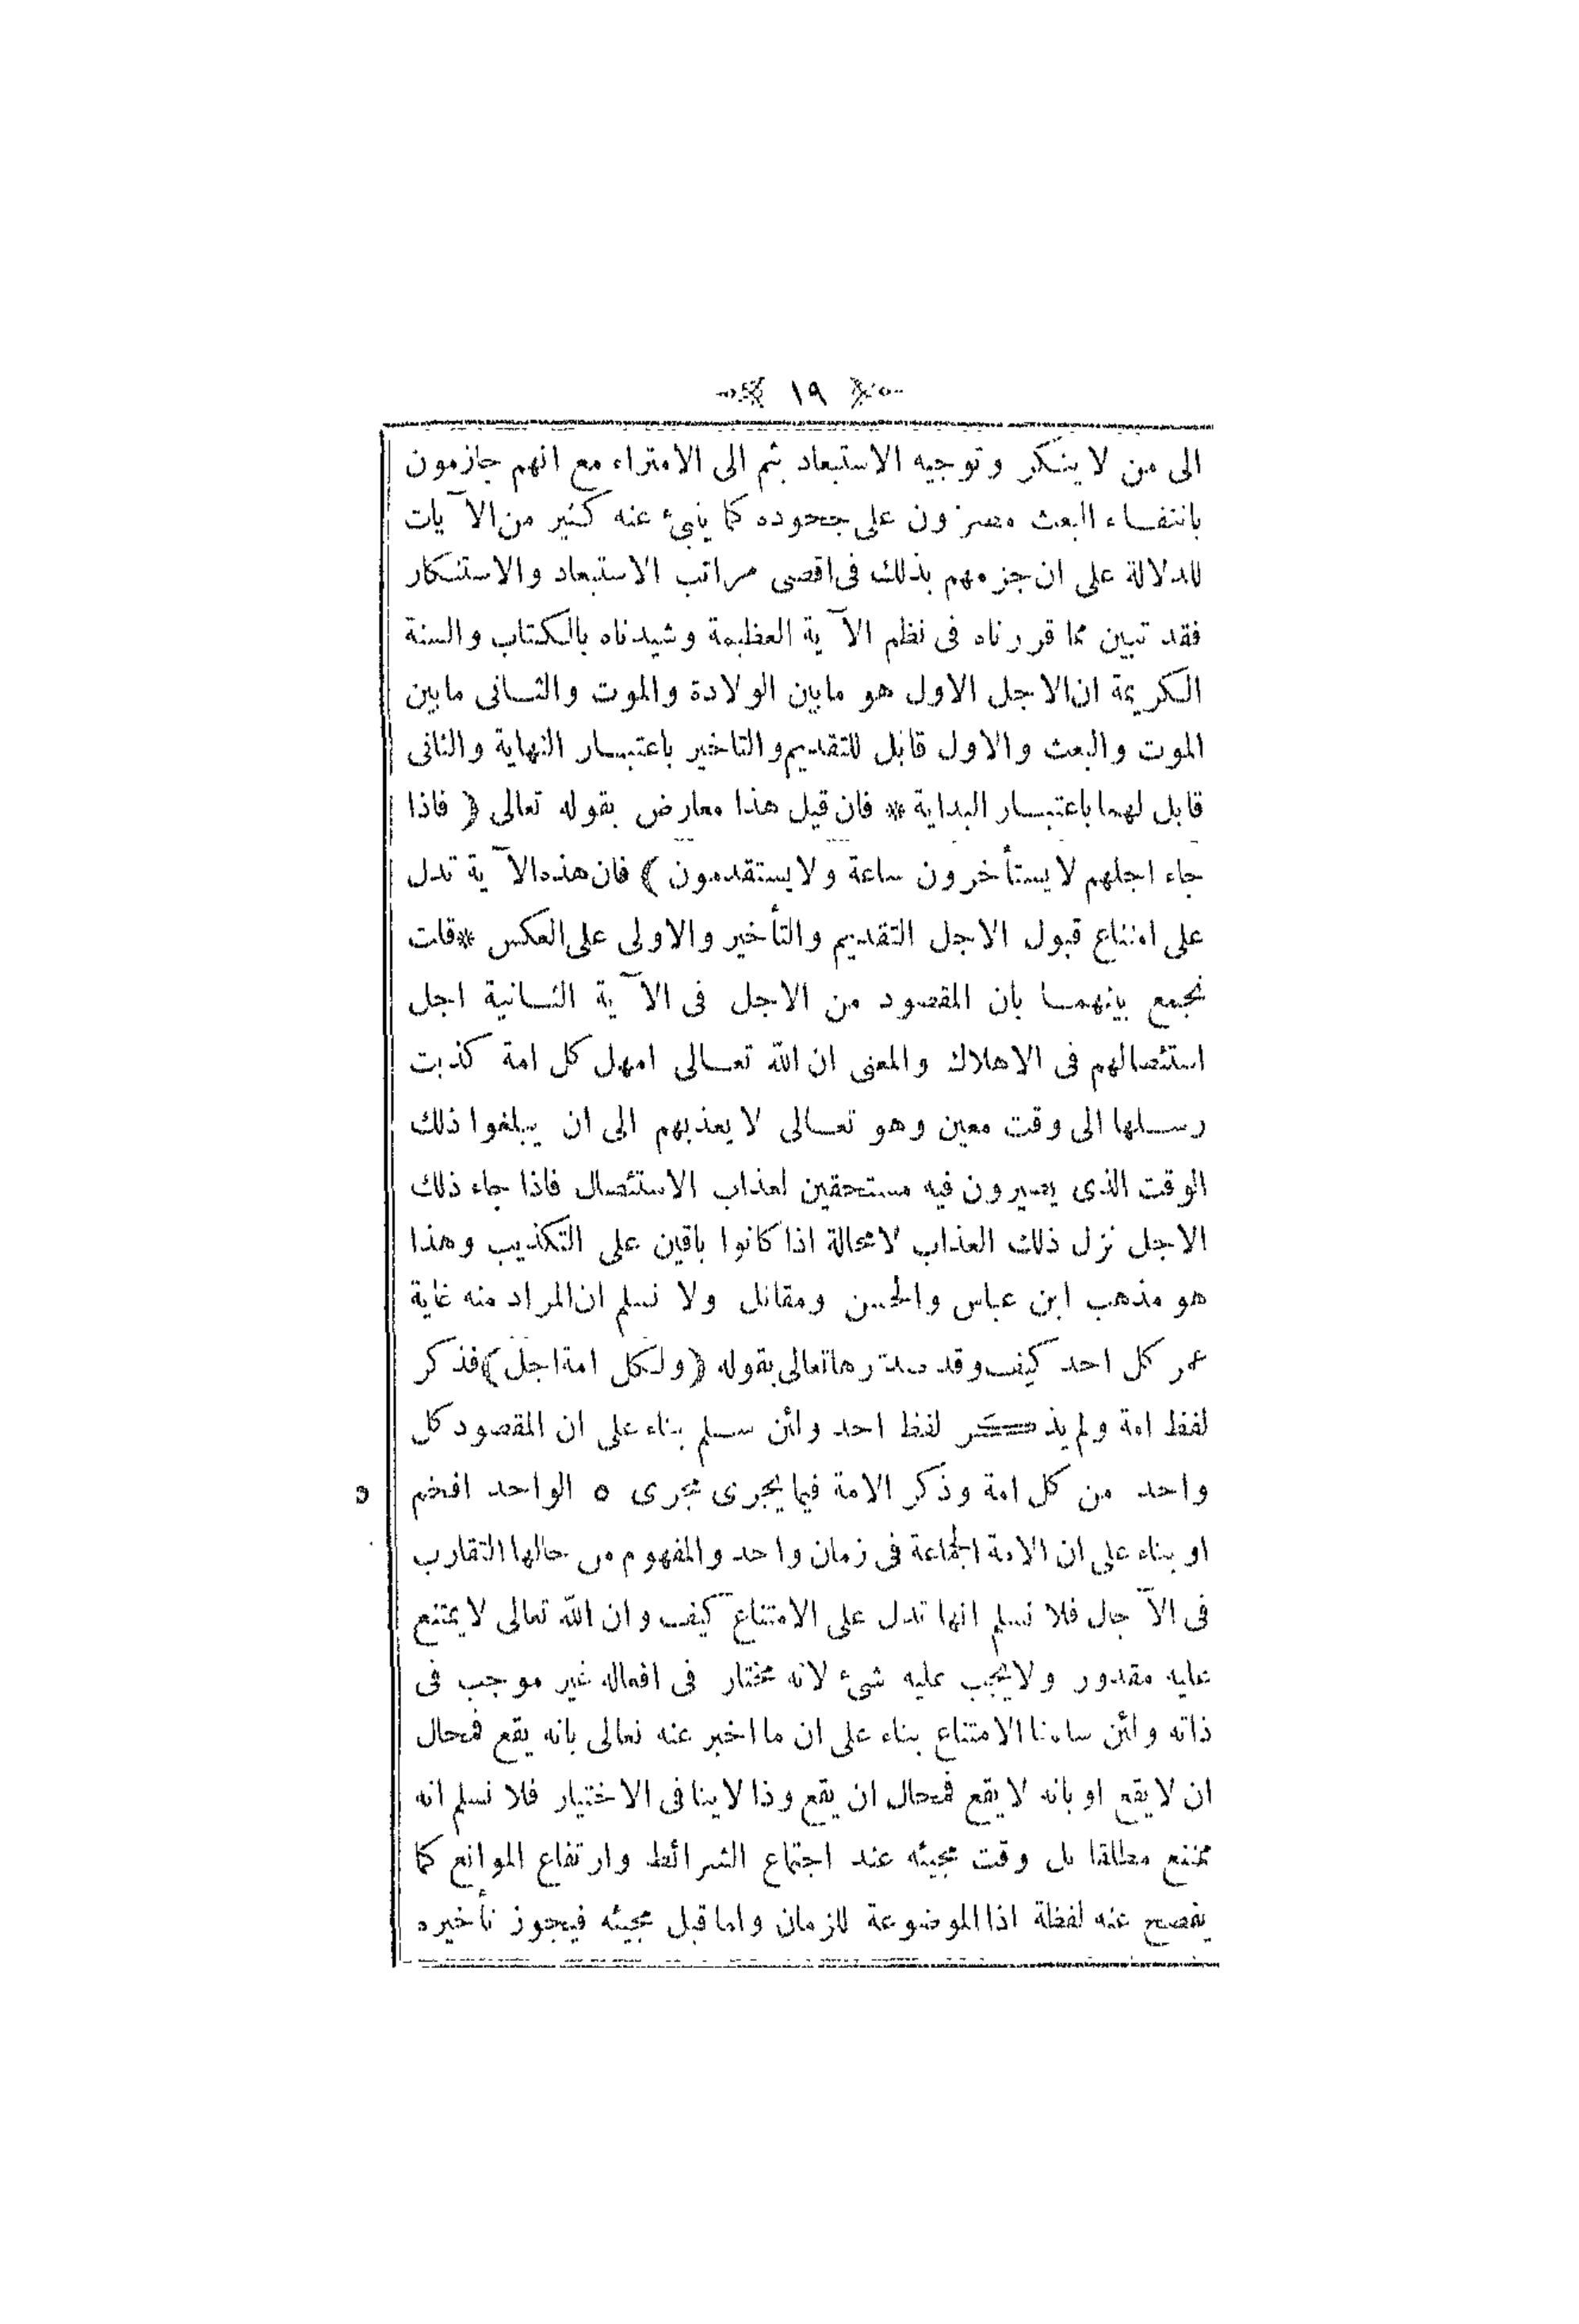 ١٩
الى من لا ينكر وتوجيه الاستبعاد بثم الى الامتراء مع انهم جازمون
بانتفاء البعث مصرون على جحوده كما ينبئ عنه كثير من الآيات
للدلالة على ان جزمهم بذلك فى اقصى مراتب الاستبعاد والاستنكار
فقد تبين مما قررناه فى نظم الآية العظيمة وشيدناه بالكتاب والسنة
الكريمة ان الاجل الاول هو مابين الولادة والموت والثانى مابين
الموت والبعث والاول قابل للتقديم والتاخير باعتبار النهاية والثانى
قابل لهما باعتبار البداية * فان قيل هذا معارض بقوله تعالى ﴿ فاذا
جاء اجلهم لا يستأخرون ساعة ولا يستقدمون ﴾ فان هذه الآية تدل
على امتناع قبول الاجل التقديم والتأخير والاولى على العكس * قلت
نجمع بينهما بان المقصود من الاجل فى الآية الثانية اجل
استئصالهم فى الاهلاك والمعنى ان الله تعالى امهل كل امة كذبت
رسلها الى وقت معين وهو تعالى لا يعذبهم الى ان يبلغوا ذلك
الوقت الذى يصيرون فيه مستحقين لعذاب الاستئصال فاذا جاء ذلك
الاجل نزل ذلك العذاب لا محالة اذا كانوا باقين على التكذيب وهذا
هو مذهب ابن عباس والحسن ومقاتل ولا نسلم ان المراد منه غاية
عمر كل احد كيف وقد صدرها تعالى بقوله ﴿ ولكل امة اجل ﴾ فذكر
لفظ امة ولم يذكر لفظ احد ولئن سلم بناء على ان المقصود كل
واحد من كل امة وذكر الامة فيما يجرى مجرى ٥ الواحد افخم
٥
او بناء على ان الامة الجماعة فى زمان واحد والمفهوم من حالها التقارب
فى الآجال فلا نسلم انها تدل على الامتناع كيف وان الله تعالى لا يمتنع
عليه مقدور ولا يجب عليه شئ لانه مختار فى افعاله غير موجب فى
ذاته ولئن سلمنا الامتناع بناء على ان ما اخبر عنه تعالى بانه يقع فمحال
ان لا يقع او بانه لا يقع فمحال ان يقع وذا لا ينافى الاختيار فلا نسلم انه
ممتنع مطلقا بل وقت مجيئه عند اجتماع الشرائط وارتفاع الموانع كما
يفصح عنه لفظة اذا الموضوعة للزمان واما قبل مجيئه فيجوز تأخيره